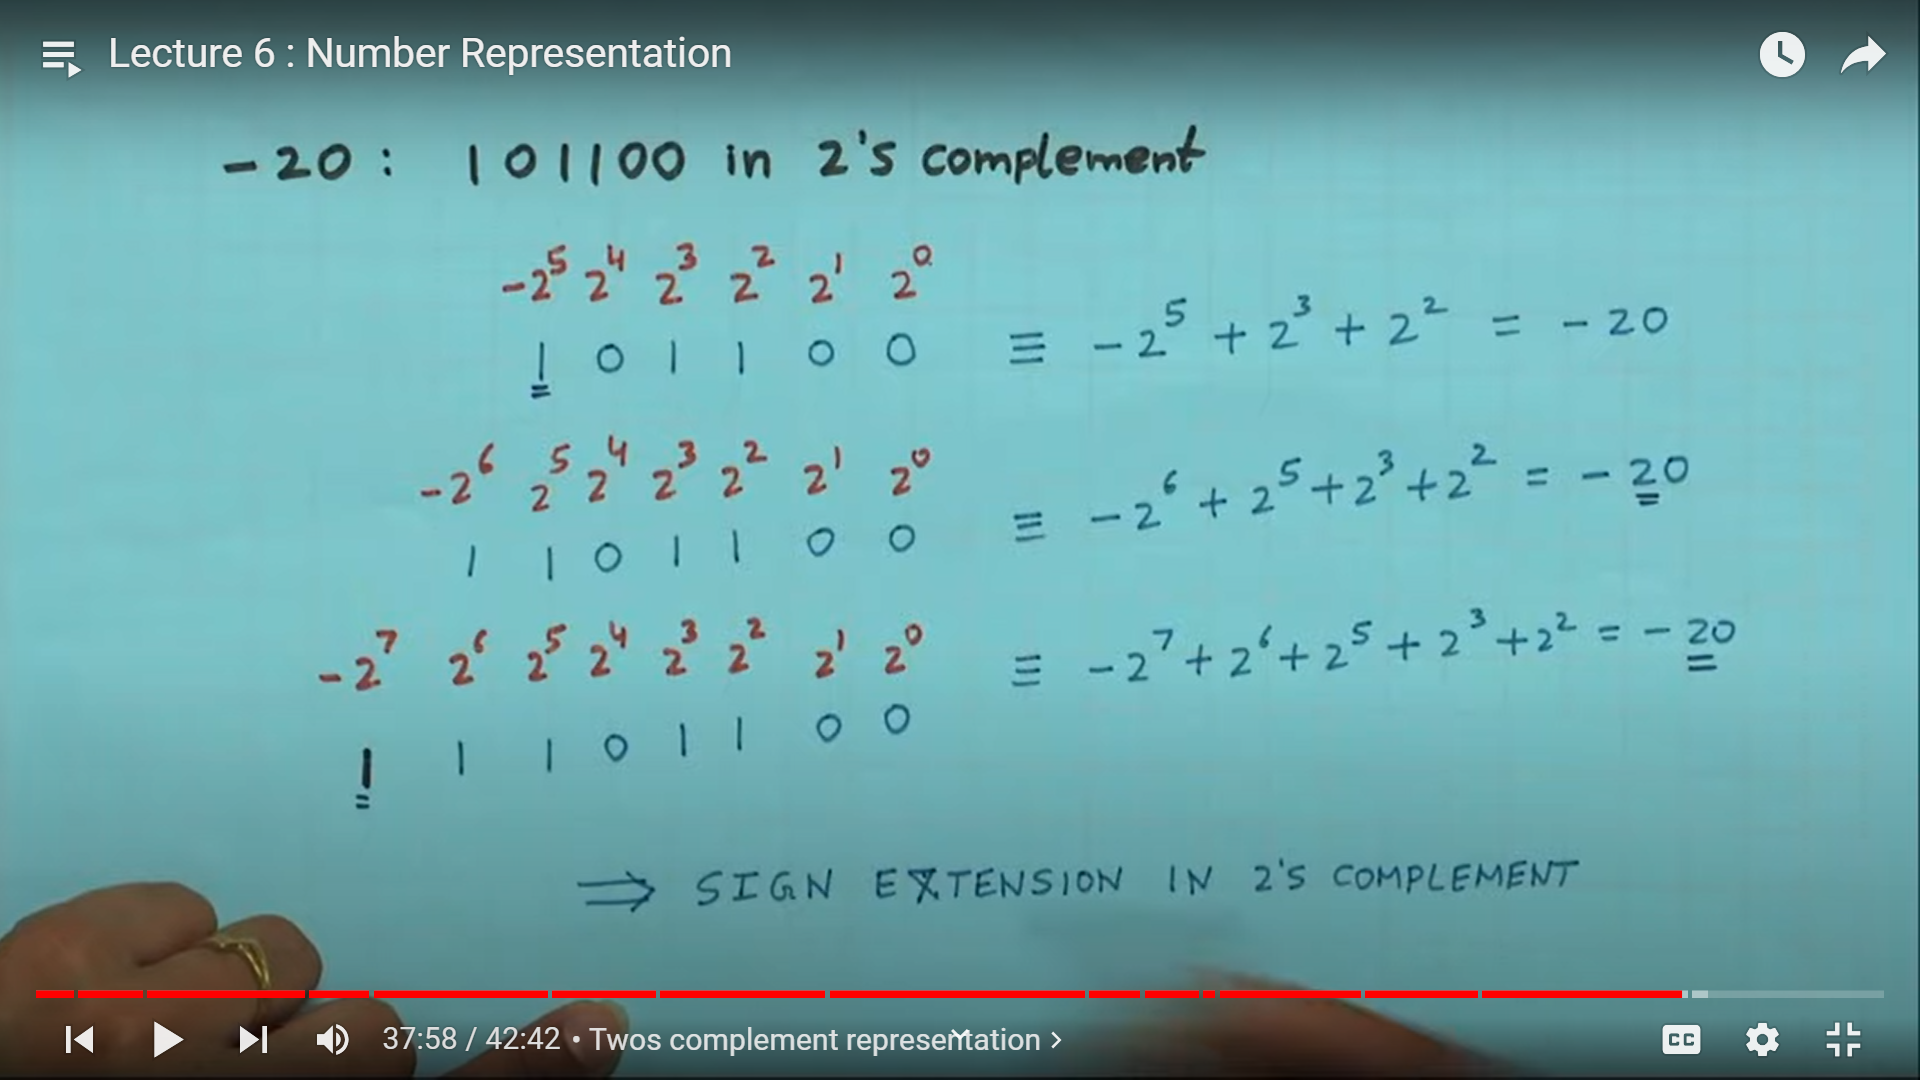 Lecture 6 : Number Representation
-20 : 101100 in 2's complement
-2⁵ 2⁴ 2³ 2² 2¹ 2⁰
1 0 1 1 0 0 ≡ -2⁵ + 2³ + 2² = -20
-2⁶ 2⁵ 2⁴ 2³ 2² 2¹ 2⁰
1 1 0 1 1 0 0 ≡ -2⁶ + 2⁵ + 2³ + 2² = -20
-2⁷ 2⁶ 2⁵ 2⁴ 2³ 2² 2¹ 2⁰
1 1 1 0 1 1 0 0 ≡ -2⁷ + 2⁶ + 2⁵ + 2³ + 2² = -20
⇒ SIGN EXTENSION IN 2'S COMPLEMENT
37:58 / 42:42 • Twos complement representation >
CC